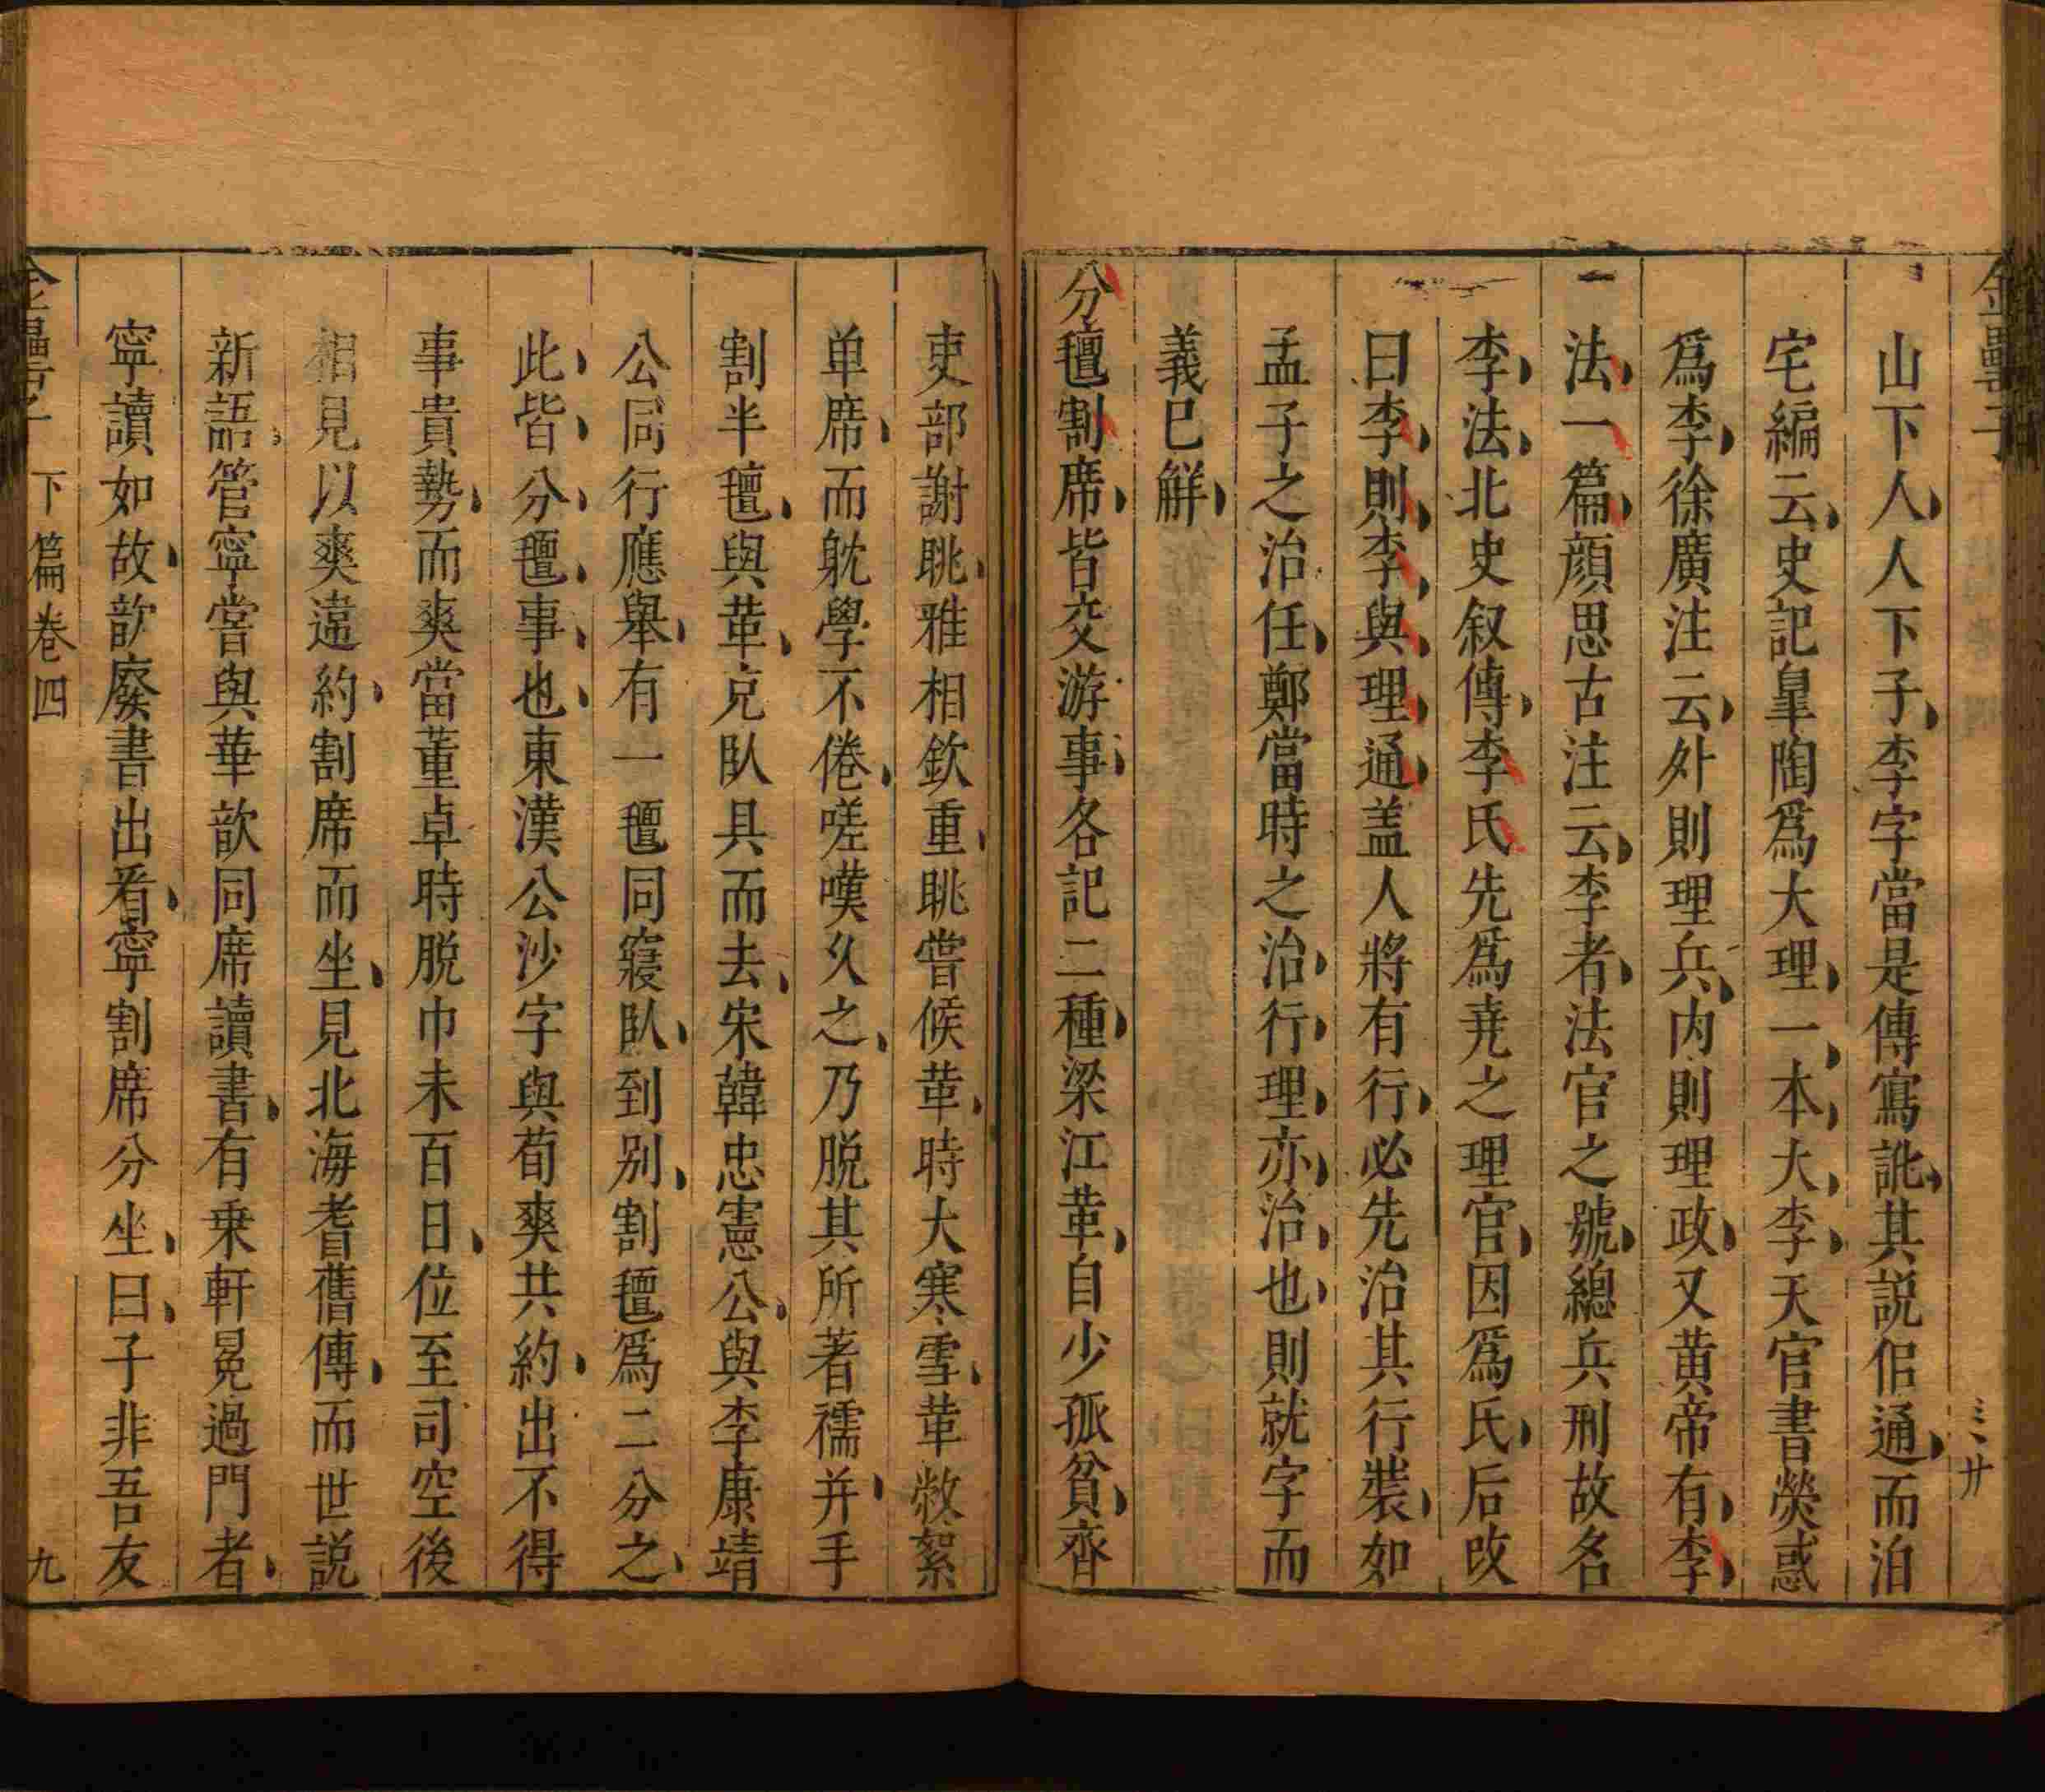 金罍子
山下人人下子李字當是傳寫訛其説佀通而泊
宅編云史記臯陶爲大理一本大李天官書熒惑
爲李徐廣注云外則理兵内則理政又黄帝有李
法一篇顔思古注云李者法官之號總兵刑故名
李法北史叙傳李氏先爲堯之理官因爲氏后改
曰李則李與理通盖人將有行必先治其行裝如
孟子之治任鄭當時之治行理亦治也則就字而
義已觧
分氊割席皆交游事各記二種梁江革自少孤貧齊
吏部謝眺雅相欽重眺嘗候革時大寒雪革敝絮
单席而躭學不倦嗟嘆久之乃脱其所著襦并手
割半氊與革克臥具而去宋韓忠憲公與李康靖
公同行應舉有一氊同寢臥到别割氊爲二分之
此皆分氊事也東漢公沙孚與荀爽共約出不得
事貴勢而爽當董卓時脱巾未百日位至司空後
相見以爽違約割席而坐見北海耆舊傳而世説
新語管寧嘗與華歆同席讀書有乗軒冕過門者
寧讀如故歆廢書出看寧割席分坐曰子非吾友
下篇卷四
九